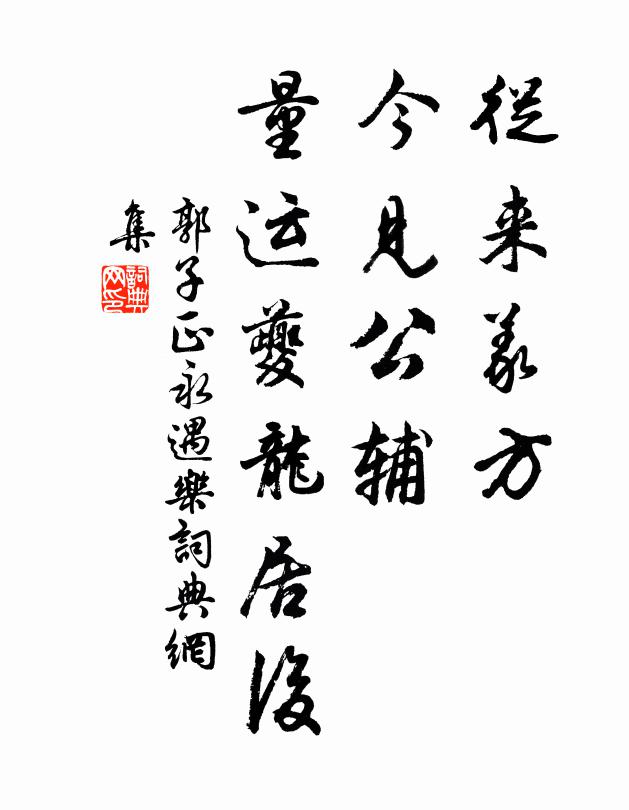 從来義方
今見公輔
量运夔龍居後
郭子正永遇樂詞典網
集
詞典
网印